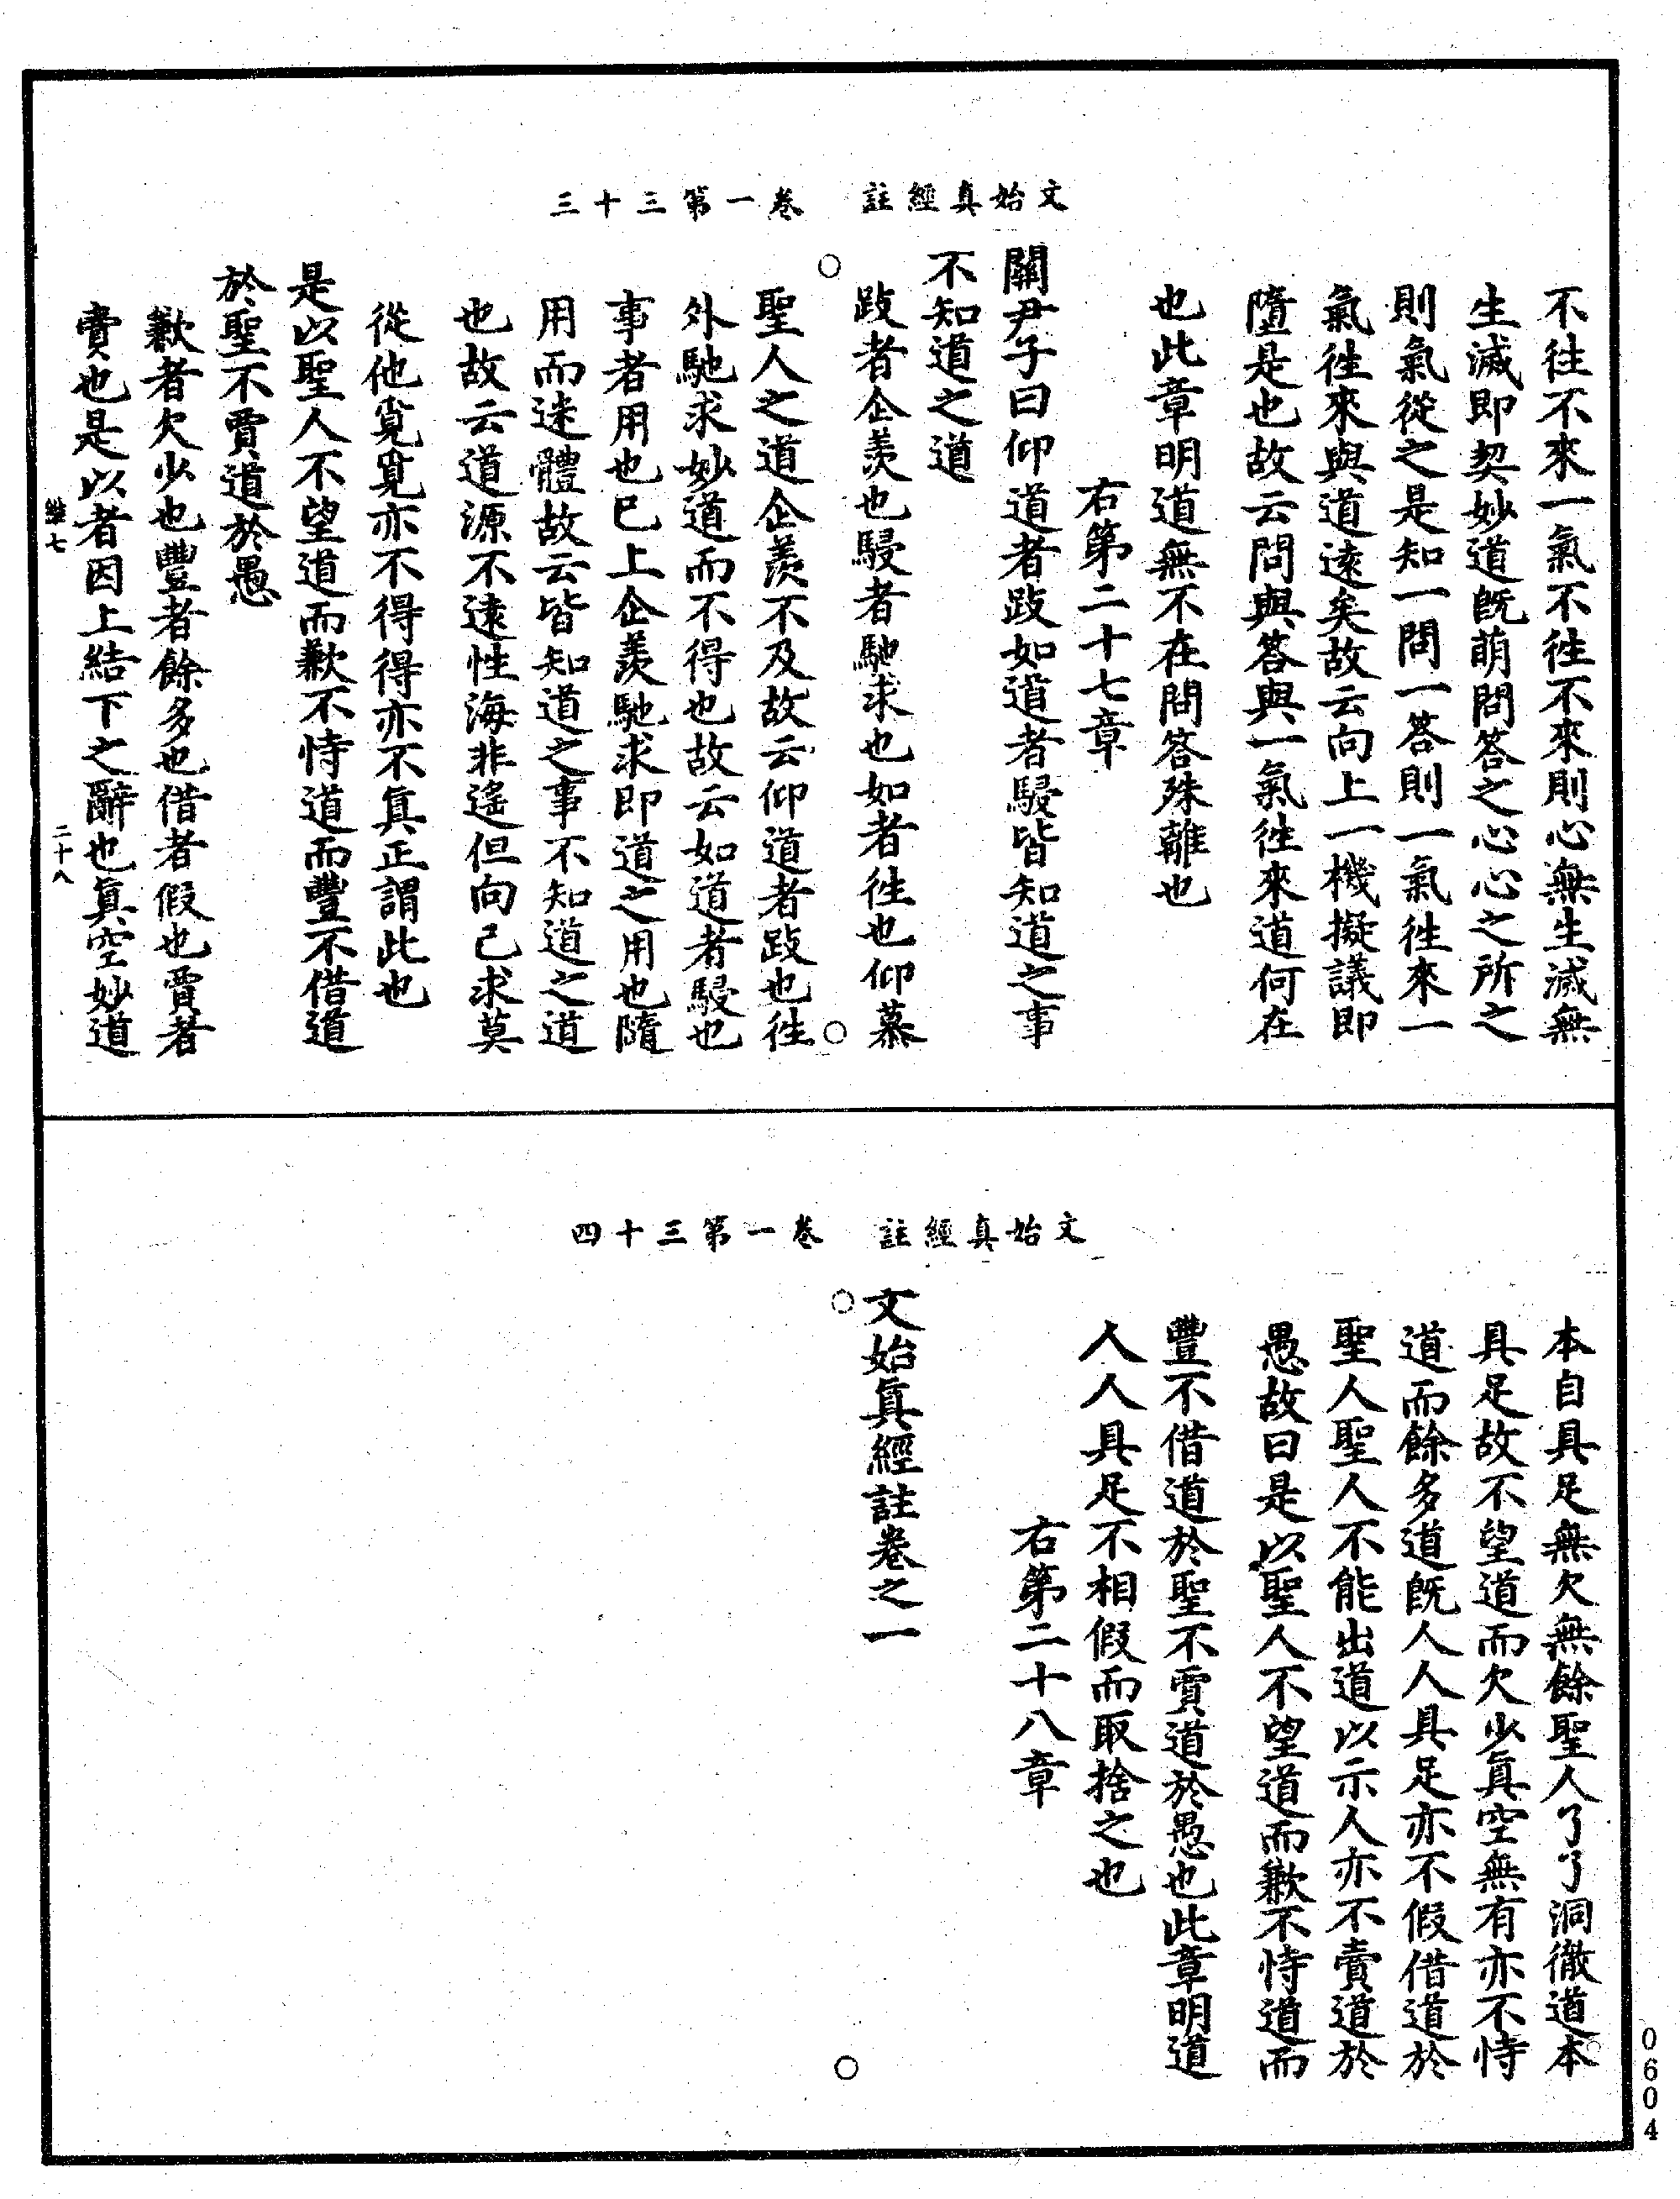 文始真經註　卷一第三十三
不往不來一氣不往不來則心無生滅無
生滅即契妙道旣萌問答之心心之所之
則氣從之是知一問一答則一氣往來一
氣往來與道遠矣故云向上一機擬議即
墮是也故云問與答與一氣往來道何在
也此章明道無不在問答殊離也
右第二十七章
關尹子曰仰道者跂如道者駸皆知道之事
不知道之道
跂者企羨也駸者馳求也如者往也仰慕
聖人之道企羨不及故云仰道者跂也往
外馳求妙道而不得也故云如道者駸也
事者用也已上企羨馳求即道之用也隨
用而迷體故云皆知道之事不知道之道
也故云道源不遠性海非遙但向己求莫
從他覓覓亦不得得亦不真正謂此也
是以聖人不望道而歉不恃道而豐不借道
於聖不賈道於愚
歉者欠少也豐者餘多也借者假也賈者
賣也是以者因上結下之辭也眞空妙道
維七　二十八
文始真經註　卷一第三十四
本自具足無欠無餘聖人了了洞徹道本
具足故不望道而欠少眞空無有亦不恃
道而餘多道旣人人具足亦不假借道於
聖人聖人不能出道以示人亦不賣道於
愚故曰是以聖人不望道而歉不恃道而
豐不借道於聖不賈道於愚也此章明道
人人具足不相假而取捨之也
右第二十八章
文始眞經註卷之一
0604